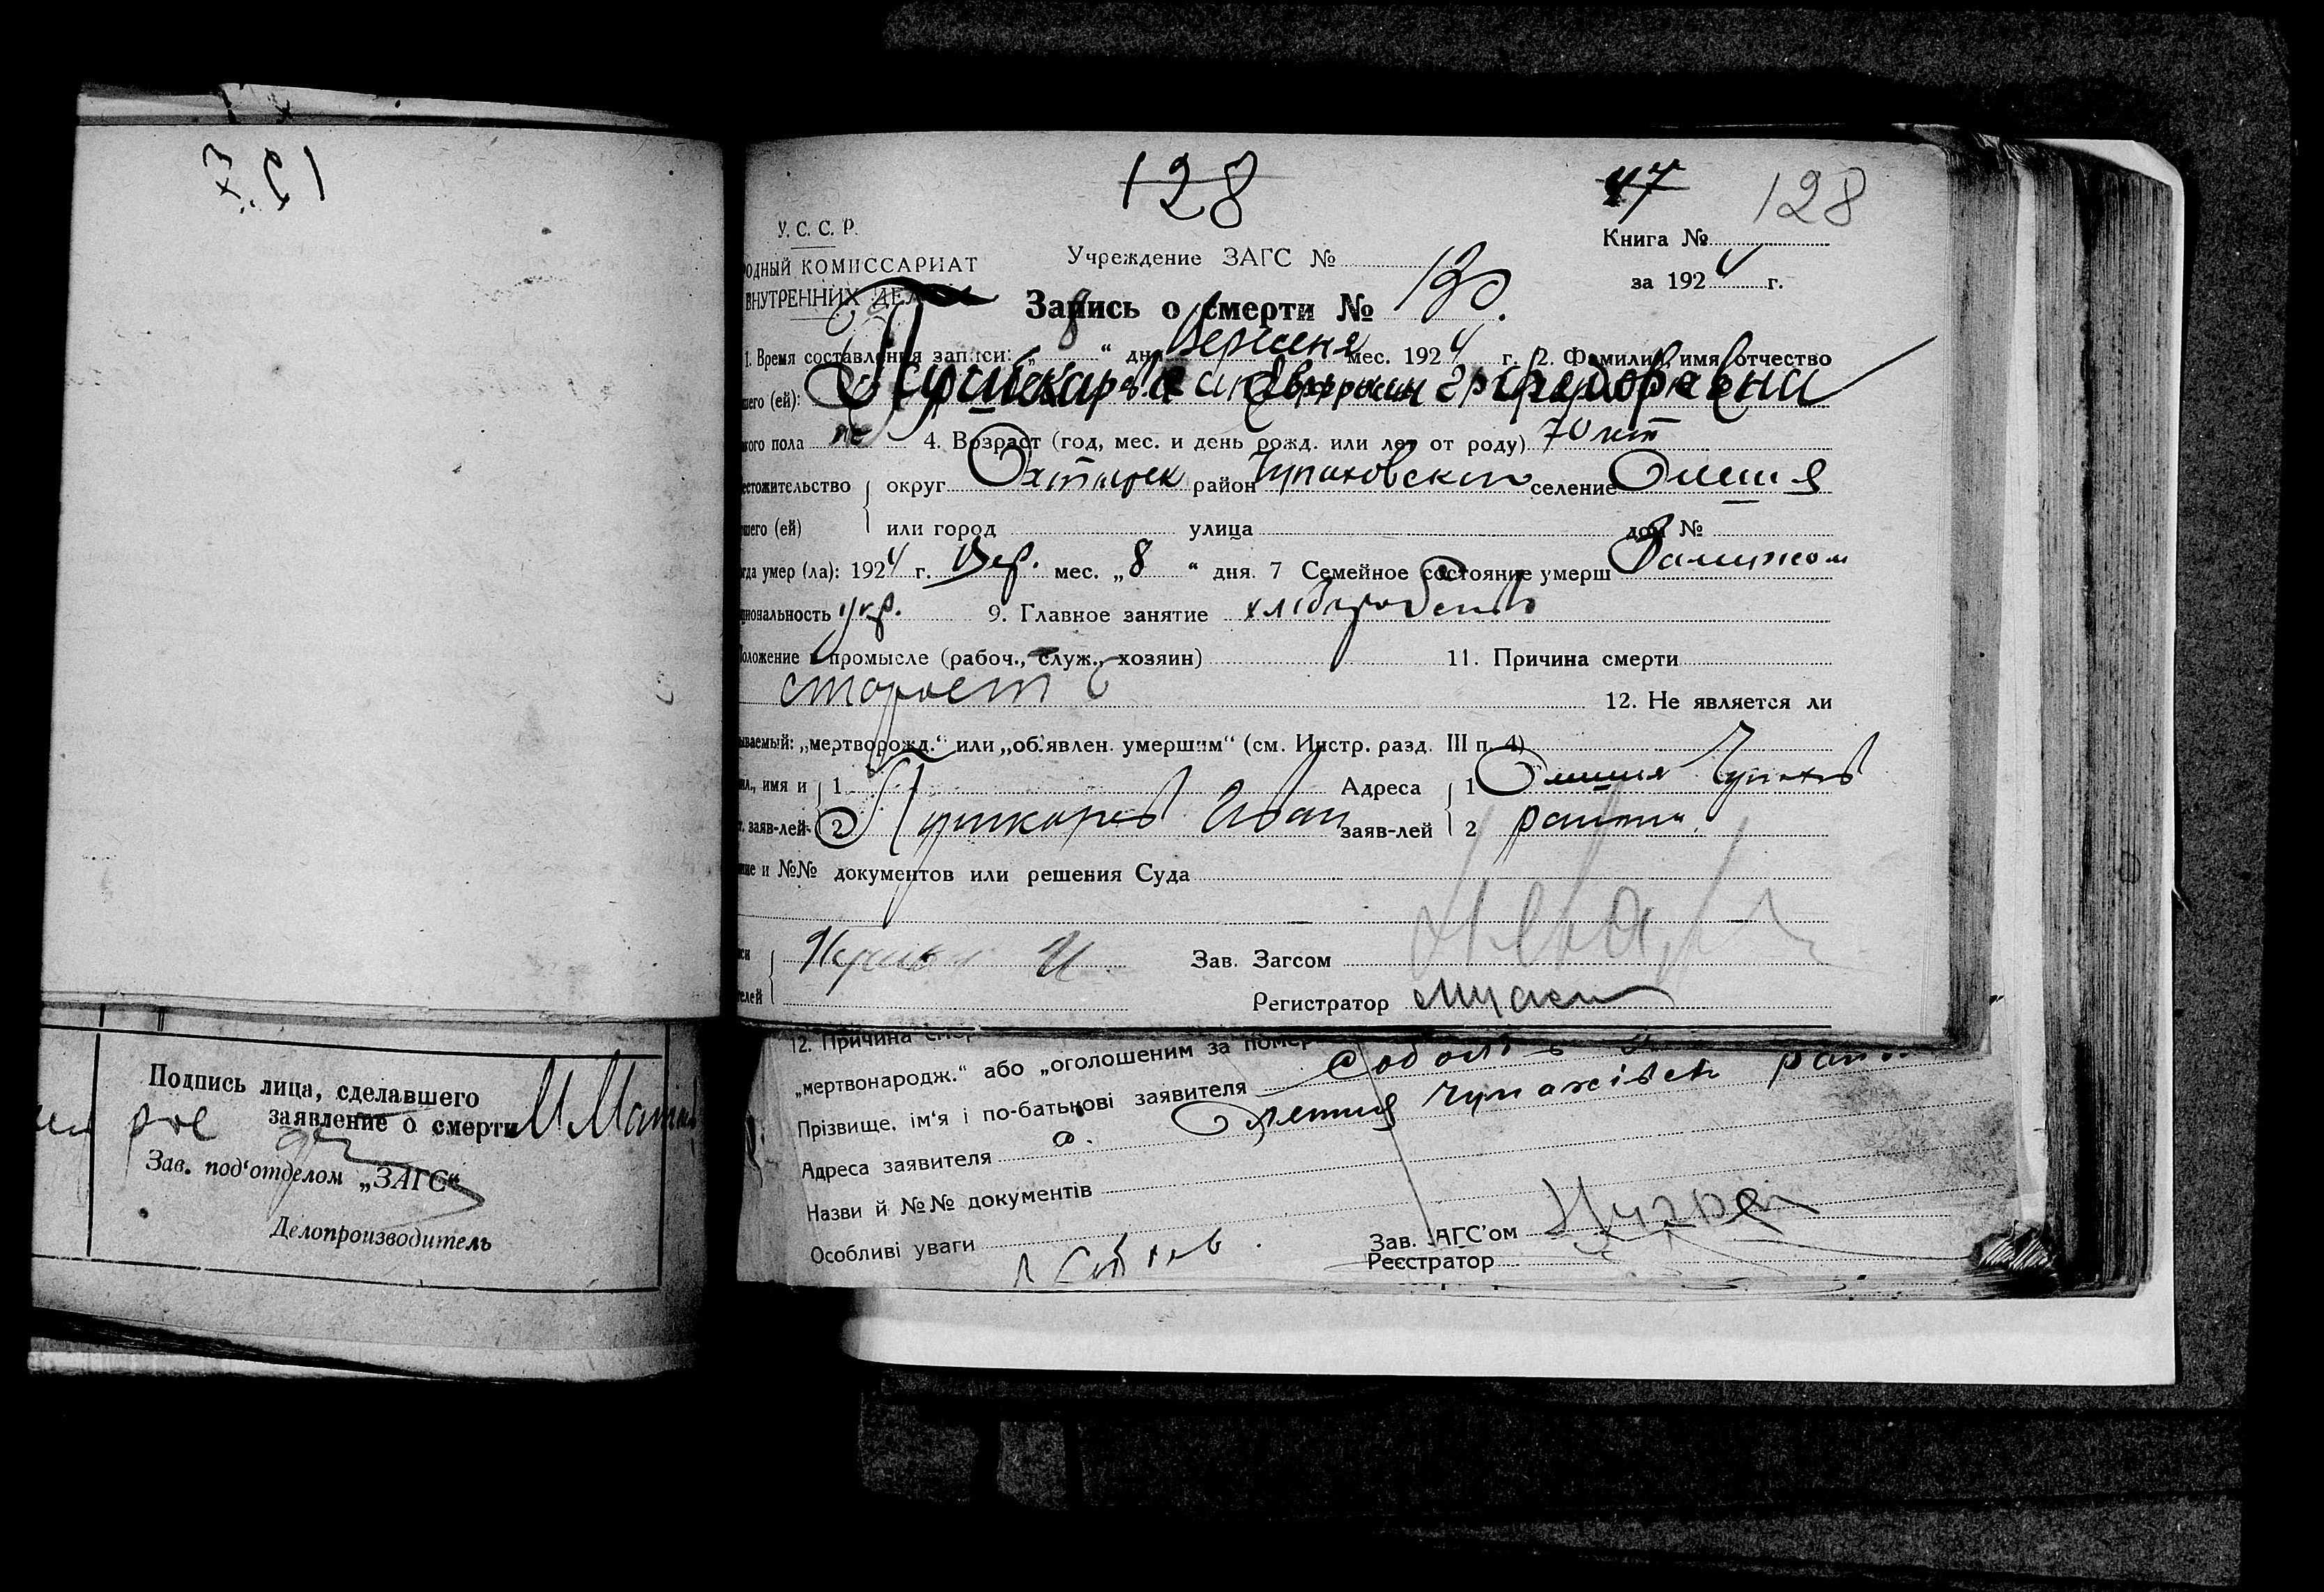 128
47 128
У. С. С. Р.
Книга №
РОДНЫЙ КОМИССАРИАТ
Учреждение ЗАГС №
ВНУТРЕННИХ ДЕЛ
за 1924 г.
Запись о смерти № 130.
1. Время составления записи: „8“ дня Вересня мес. 1924 г. 2. Фамилия, имя, отчество
шего (ей): Пушкарева
кого пола ж 4. Возраст (год, мес. и день рожд. или лет от роду) 70 лет
естожительство округ Охтирск район Чупаховский селение Олешня
шего (ей) или город улица дом №
гда умер (ла): 1924 г. Вер. мес. „8“ дня. 7 Семейное состояние умерш Замужем
циональность укр. 9. Главное занятие хлібороб
оложение в промысле (рабоч., служ., хозяин) 11. Причина смерти
старость 12. Не является ли
ываемый: „мертворожд.“ или „об'явлен. умершим“ (см. Инстр. разд. III п. 4)
ил., имя и 1 Адреса 1 Олешня Чупахів
т. заяв-лей 2 Пушкарев Иван заяв-лей 2 району.
ние и №№ документов или решения Суда
Зав. Загсом
телей Регистратор
12. Причина смер
„мертвонародж.“ або „оголошеним за помер
Прізвище, ім'я і по-батькові заявителя
Адреса заявителя с. Олешня Чупахівськ
Назви й №№ документів
Особливі уваги
Зав. ЗАГС'ом
Реєстратор
Подпись лица, сделавшего
заявление о смерти
Зав. под'отделом „ЗАГС“
Делопроизводитель